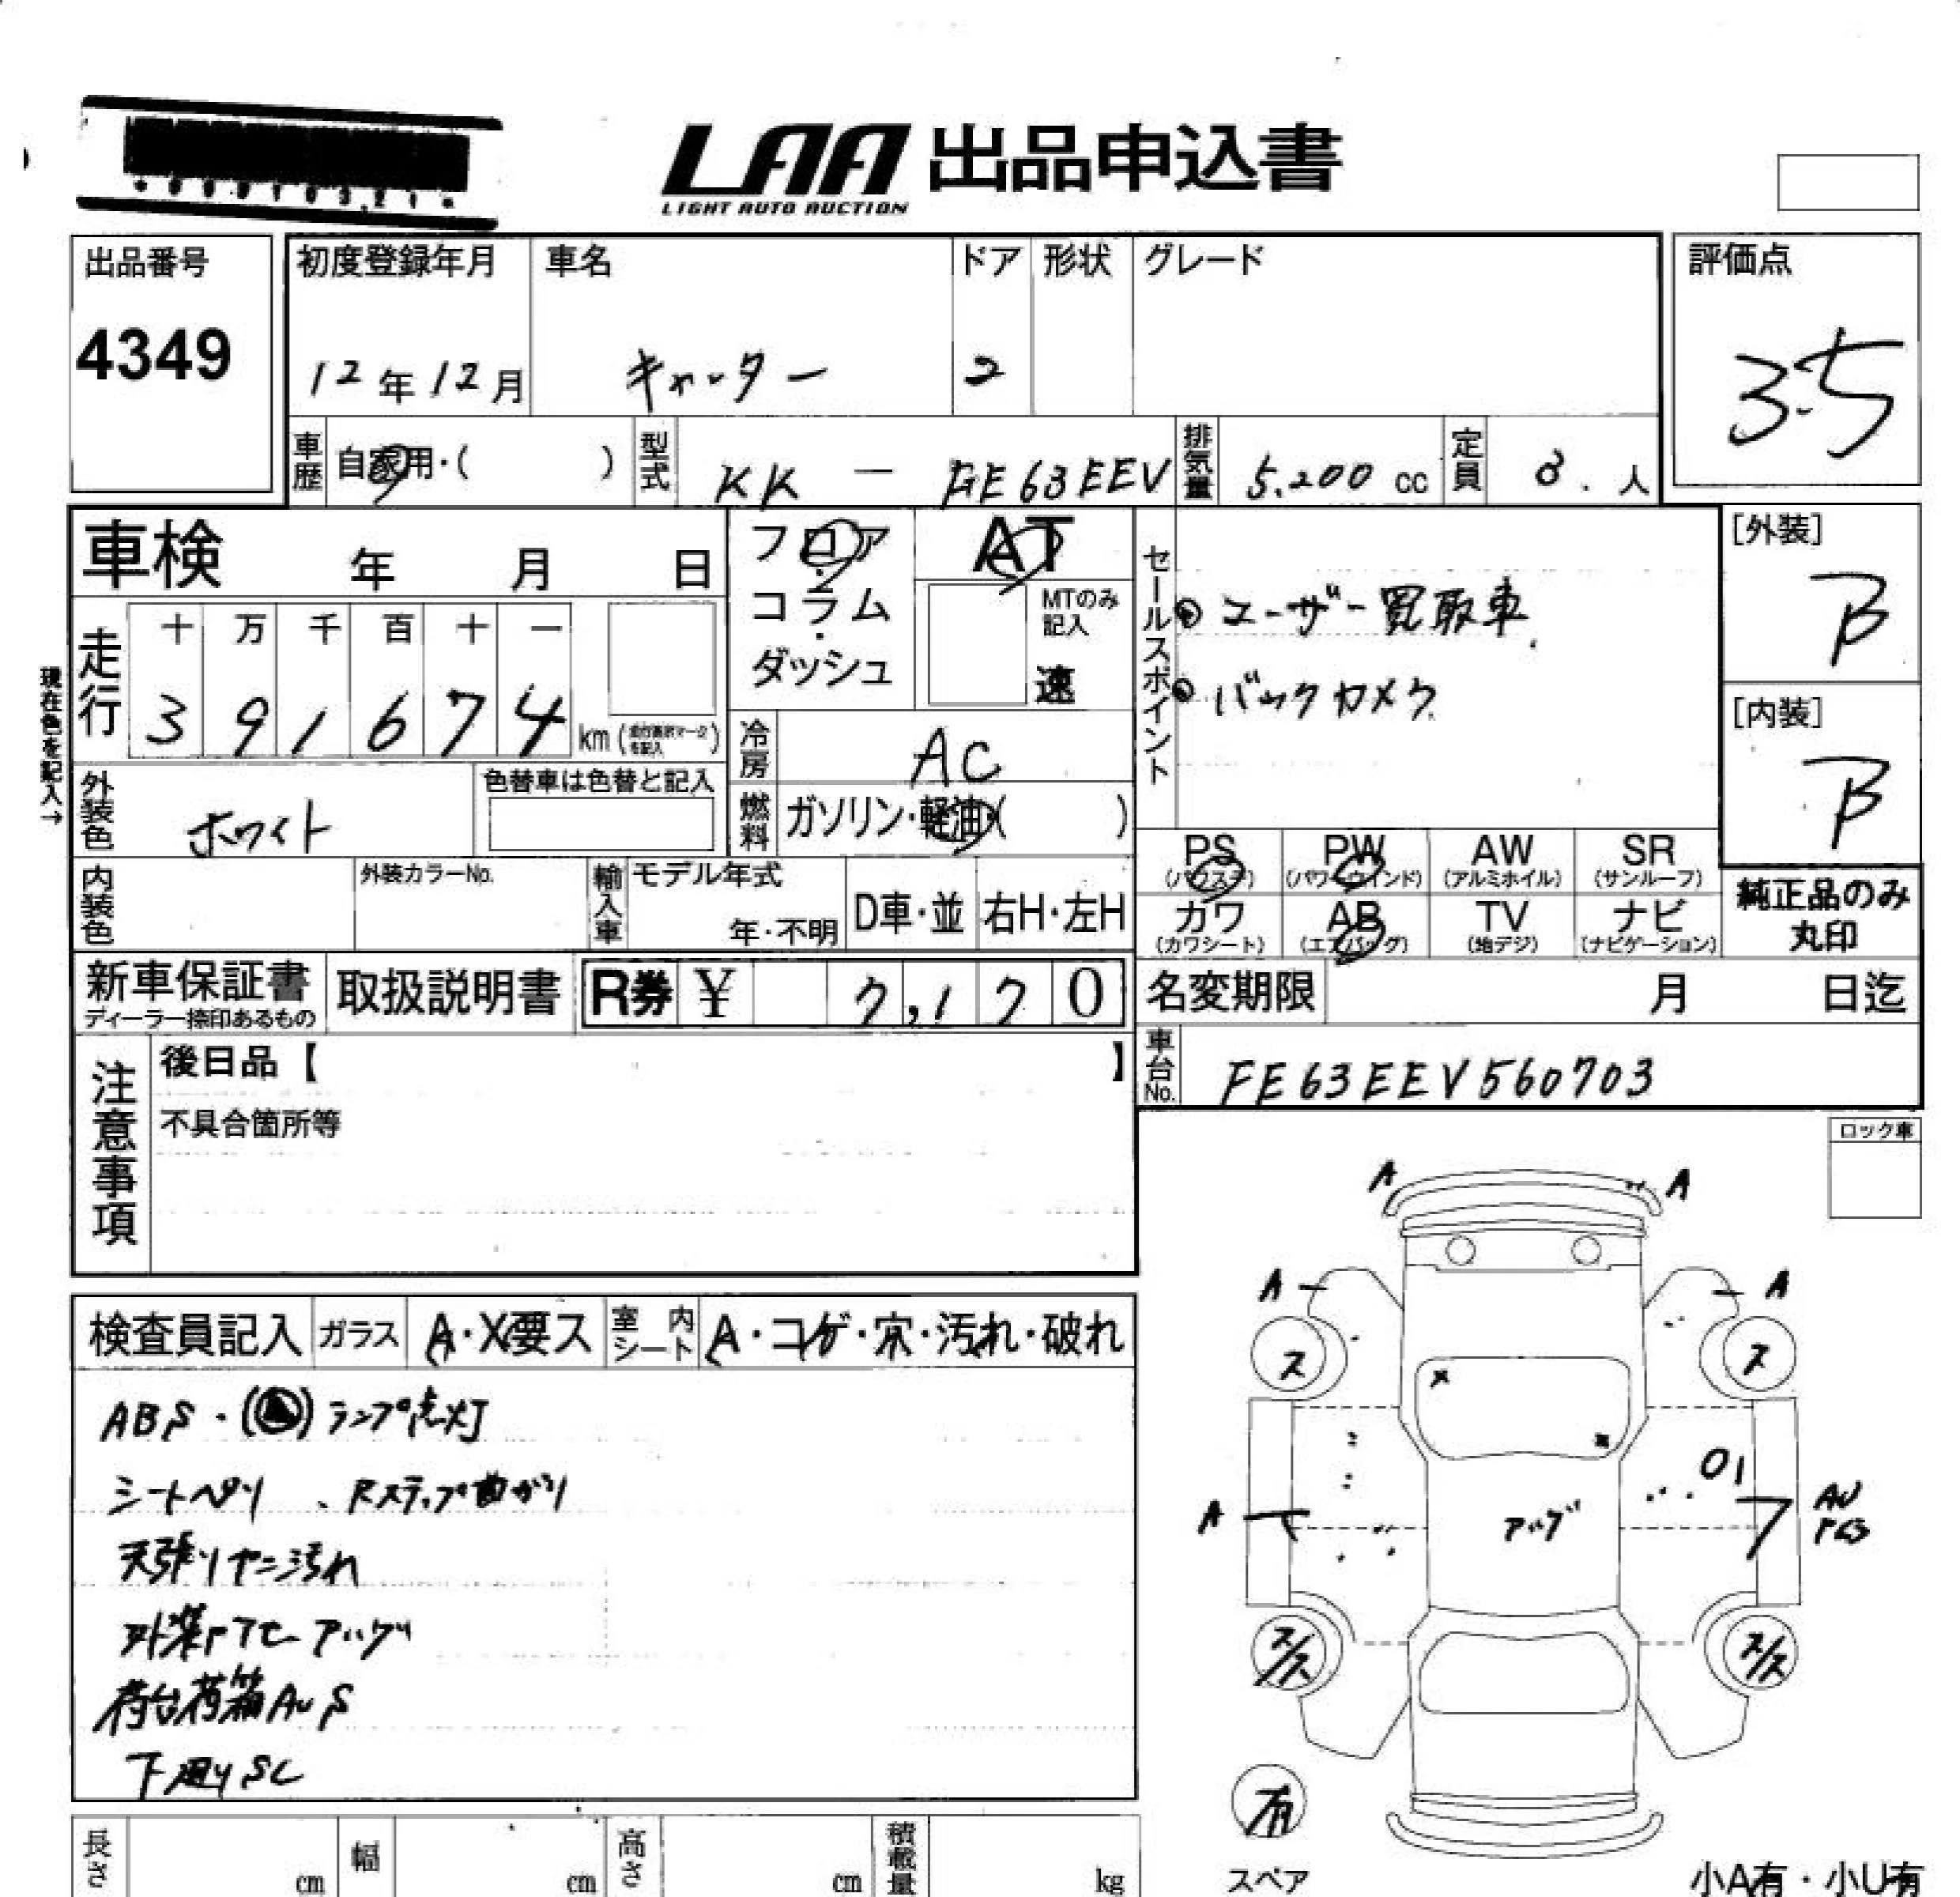 LAA 出品申込書
LIGHT AUTO AUCTION
出品番号 初度登録年月 車名 ドア 形状 グレード 評価点
4349 12年12月 キャンター 2 3.5
車歴 自家用・( ) 型式 KK - FE63EEV 排気量 5.200 cc 定員 3. 人
車検 年 月 日 フロア・コラム・ダッシュ AT
MTのみ記入 速
セールスポイント
ユーザー買取車.
バックカメラ
[外装] B
[内装] B
現在色を記入→
走行 十 万 千 百 十 一
3 9 1 6 7 4 km
冷房 AC
外装色 ホワイト 色替車は色替と記入
燃料 ガソリン・軽油・( )
PS (パワステ) PW (パワーウインド) AW (アルミホイル) SR (サンルーフ)
カワ (カワシート) AB (エアバッグ) TV (地デジ) ナビ (ナビゲーション)
純正品のみ丸印
内装色 外装カラーNo. 輸入車 モデル年式 年・不明 D車・並 右H・左H
新車保証書 ディーラー捺印あるもの 取扱説明書 R券 ¥ 7,170
名変期限 月 日迄
車台No. FE63EEV560703
注意事項
後日品【 】
不具合箇所等
ロック車
検査員記入 ガラス A・X要ス 室内シート A・コゲ・穴・汚れ・破れ
ABS・( )ランプ点灯
シートヘタリ、Rステップ曲がり
天張りヤニ汚れ
アハグ
荷台荷箱AUS
下廻りSC
A A
A A
ス ス
01
A アハグ AU
ス/ス ス/ス
有
スペア
小A有・小U有
長さ cm 幅 cm 高さ cm 積載量 kg